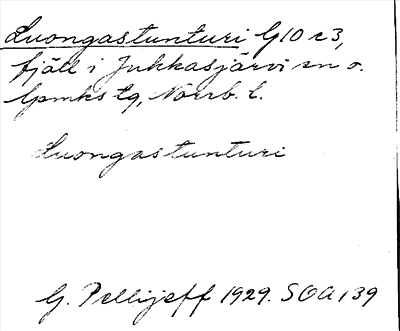 Luongastunturi G10 c3,
fjäll i Jukkasjärvi sn o.
lpmks tg, Norrb. l.
Luongastunturi
G. Pellijeff 1929. SOA, 39